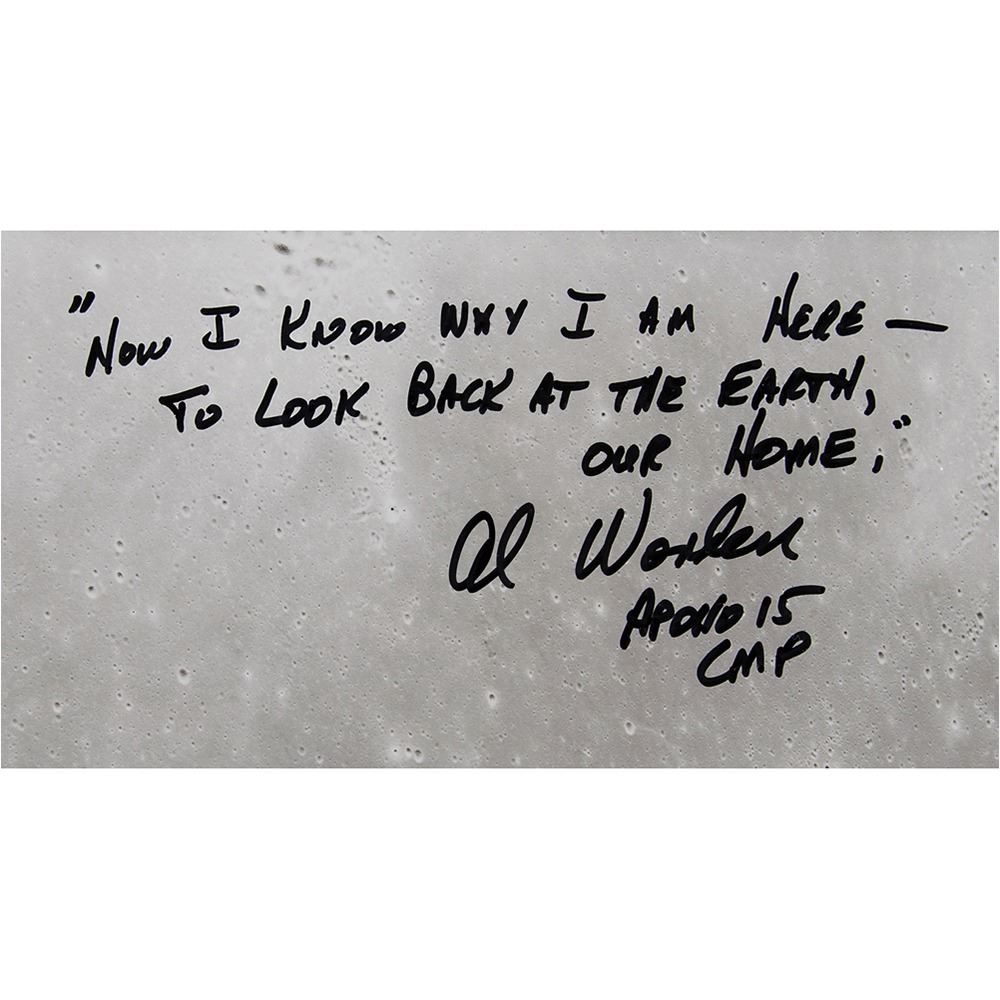 "NOW I KNOW WHY I AM HERE —
TO LOOK BACK AT THE EARTH,
OUR HOME."
Al Worden
APOLLO 15
CMP